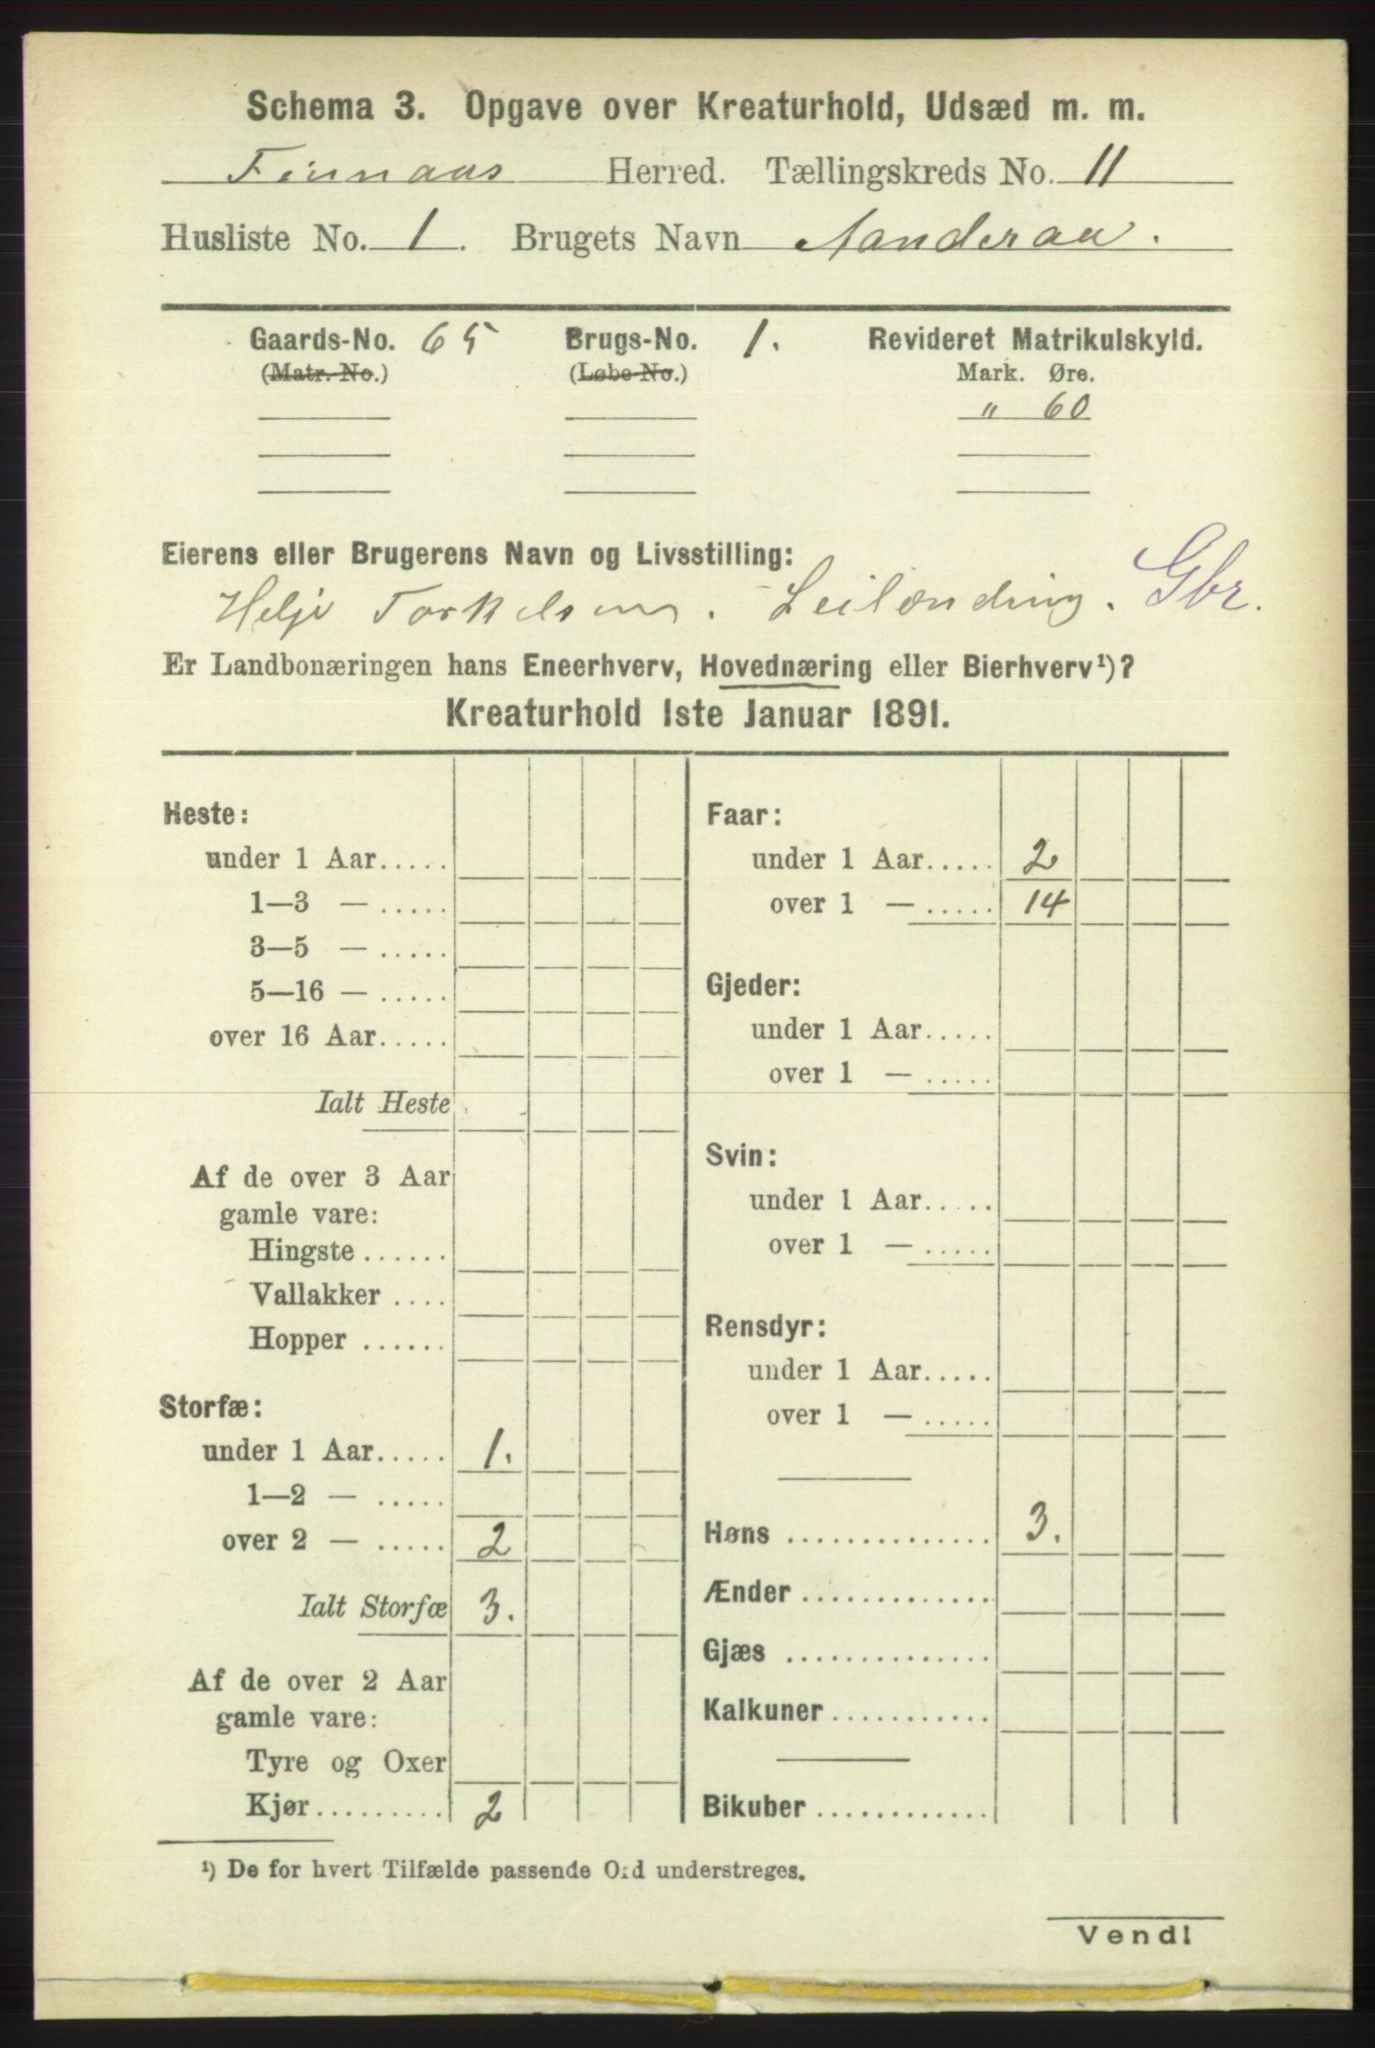 Schema 3. Opgave over Kreaturhold, Udsæd m. m.
Finnaas Herred. Tællingskreds No. 11
Husliste No. 1. Brugets Navn Aanderaa.
Gaards-No. 65 Brugs-No. 1. Revideret Matrikulskyld.
(Matr.-No.) (Løbe-No.) Mark. Øre.
" 60
Eierens eller Brugerens Navn og Livsstilling:
Helje Torkelsen. Leilænding. Gbr.
Er Landbonæringen hans Eneerhverv, Hovednæring eller Bierhverv¹)?
Kreaturhold 1ste Januar 1891.
Heste:
under 1 Aar.....
1—3 — .....
3—5 — .....
5—16 — .....
over 16 Aar.....
Ialt Heste
Af de over 3 Aar
gamle vare:
Hingste ......
Vallakker ....
Hopper ......
Storfæ:
under 1 Aar..... 1.
1—2 — .....
over 2 — ..... 2
Ialt Storfæ 3.
Af de over 2 Aar
gamle vare:
Tyre og Oxer
Kjør......... 2
Faar:
under 1 Aar..... 2
over 1 — ..... 14
Gjeder:
under 1 Aar.....
over 1 — .....
Svin:
under 1 Aar.....
over 1 — .....
Rensdyr:
under 1 Aar.....
over 1 — .....
Høns .............. 3.
Ænder .............
Gjæs ..............
Kalkuner ...........
Bikuber ............
¹) De for hvert Tilfælde passende Ord understreges.
Vend!